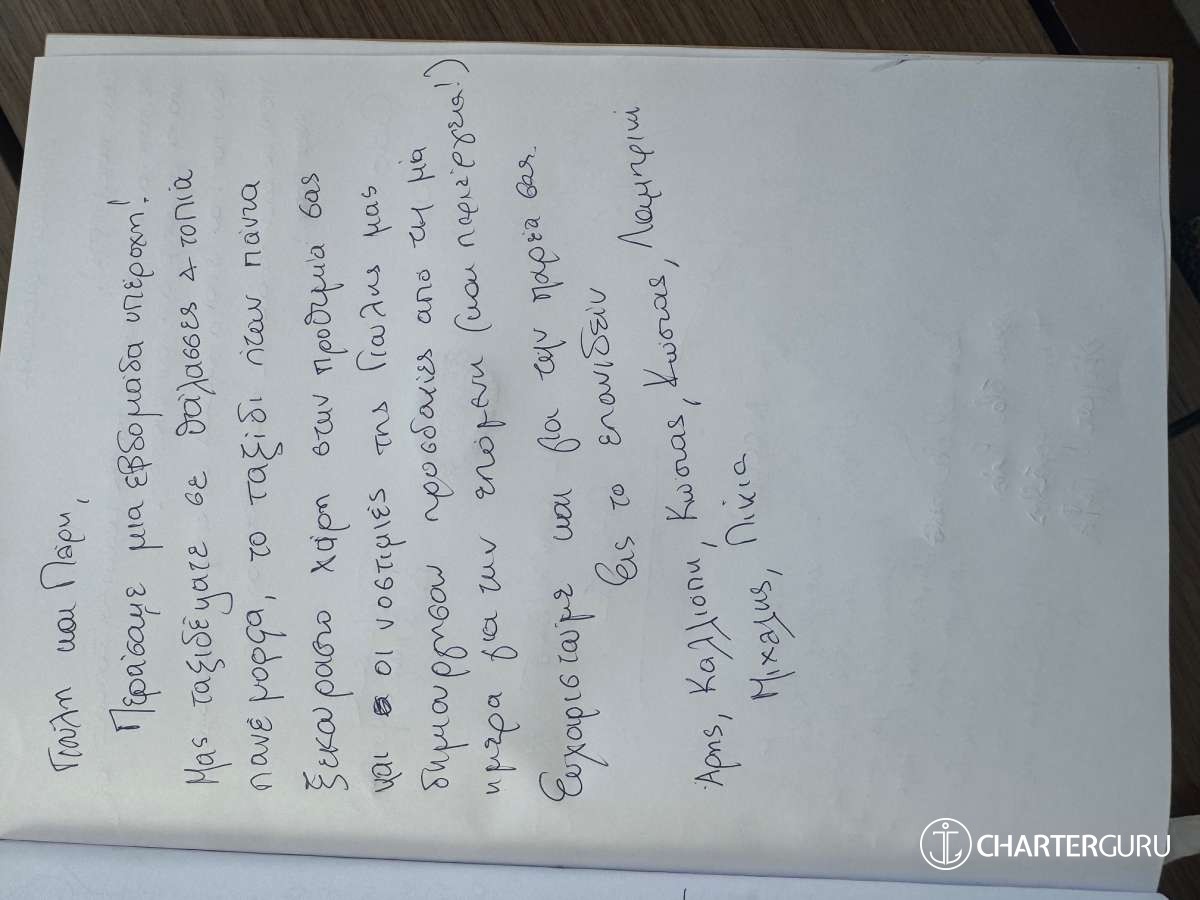 Γιούλη και Πάρη,
Περάσαμε μια εβδομάδα υπέροχη!
Μας ταξιδέψατε σε θάλασσες & τοπία
πανέμορφα, το ταξίδι ήταν πάντα
ξεκουραστο χάρη στην προθυμία σας
και οι νοστιμιές της Γιουλης μας
δημιουργησαν προσδοκίες από τη μία
ημερα για την επόμενη (και περιέργεια!)
Ευχαριστούμε και για την παρέα σας.
Εις το επανιδείν
Άρης, Καλλιοπη, Κώστας, Κώστας, Λαμπρινή
Μιχαλης, Λίκια
CHARTERGURU